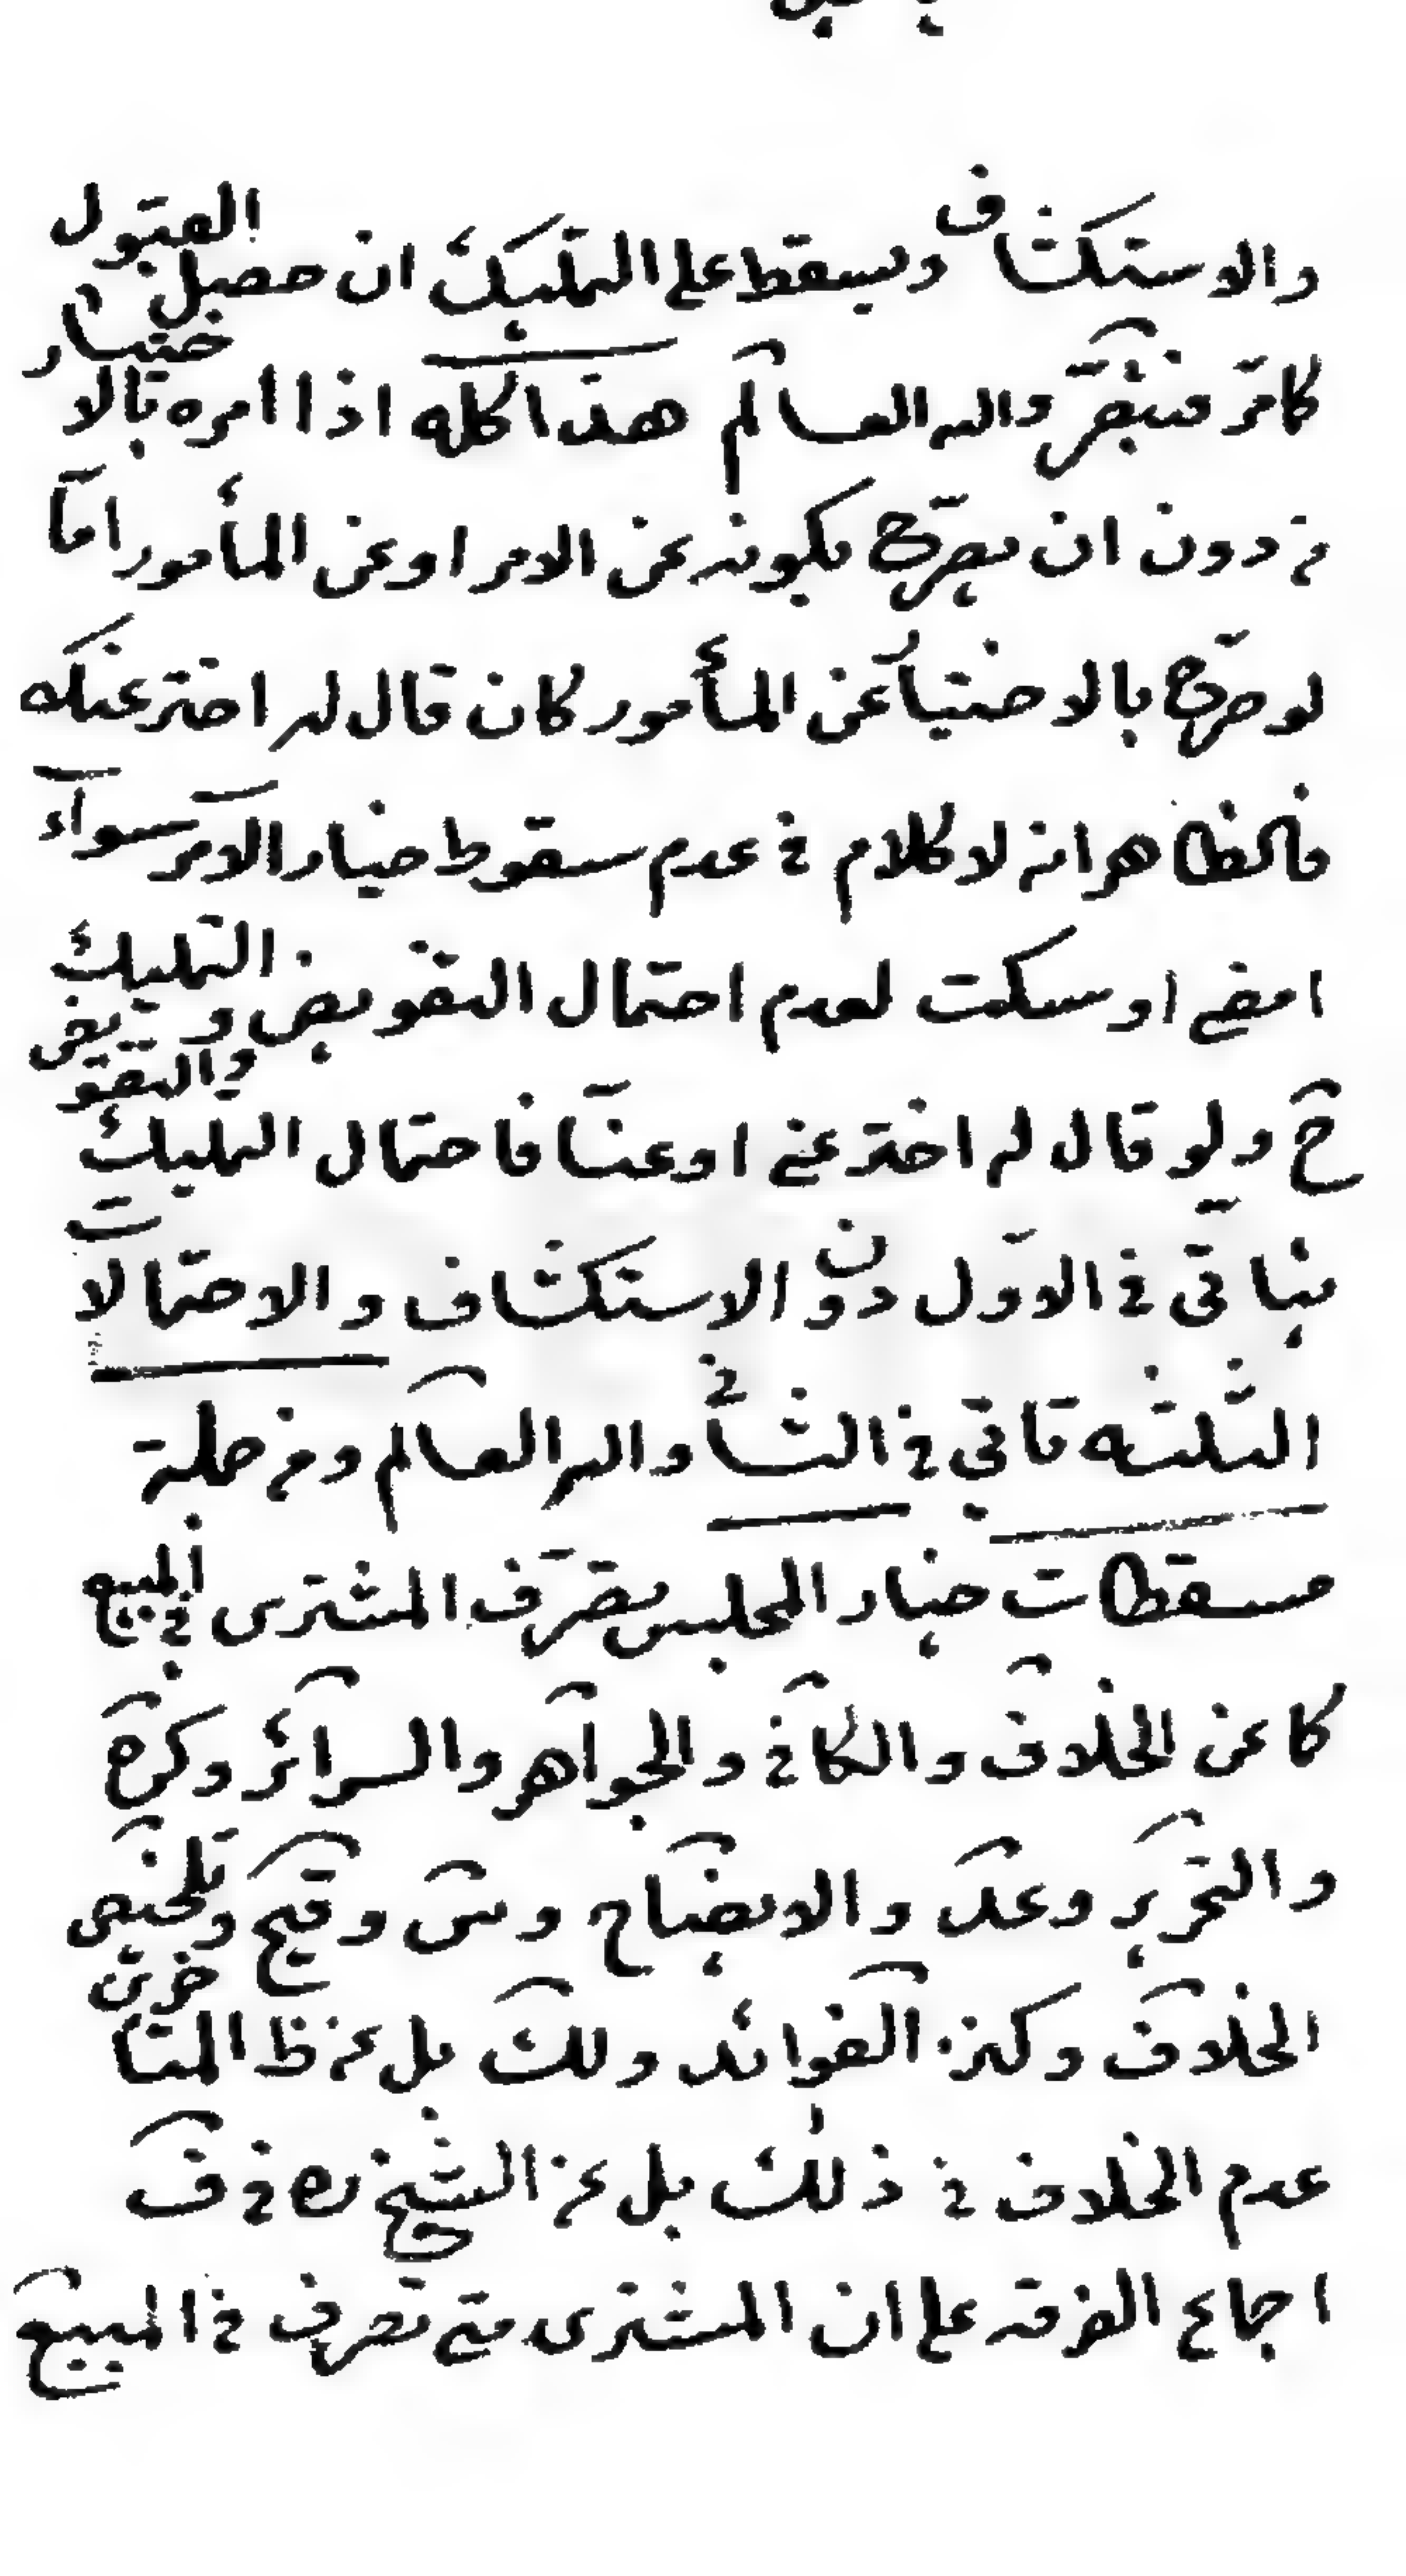 والاستكشاف ويسقط على التمليك ان حصل القبول
كامّر فتبصّر والله العالم هذا كله اذا امره بالاختيار
من دون ان يصرّح بكونه عن الامر او عن المأمور امّا
لو صرّح بالاختيار عن المأمور كان قال له اختر عنك
فالظاهر انه لا كلام في عدم سقوط خيار الآمر سواء
امضى او سكت لعدم احتمال التفويض و التمليك
ح ولو قال له اختر عني او عنّا فاحتمال التمليك والتفويض
يتأتى في الاوّل دون الاستكشاف والاحتمالات
الثلثه تاتي في الثاني والله العالم ومن جملة
مسقطات خيار المجلس تصرّف المشترى في المبيع
كا عن الخلاف والكافي والجواهر والسرائر وكره
والتحرير وعد والايضاح وس وقيح وتلخيص
الخلاف وكنز الفوائد ولك بل عن ظ المتاخرين
عدم الخلاف في ذلك بل عن الشيخ ره في ف
اجماع الفرقه على ان المشترى متى تصرف في المبيع